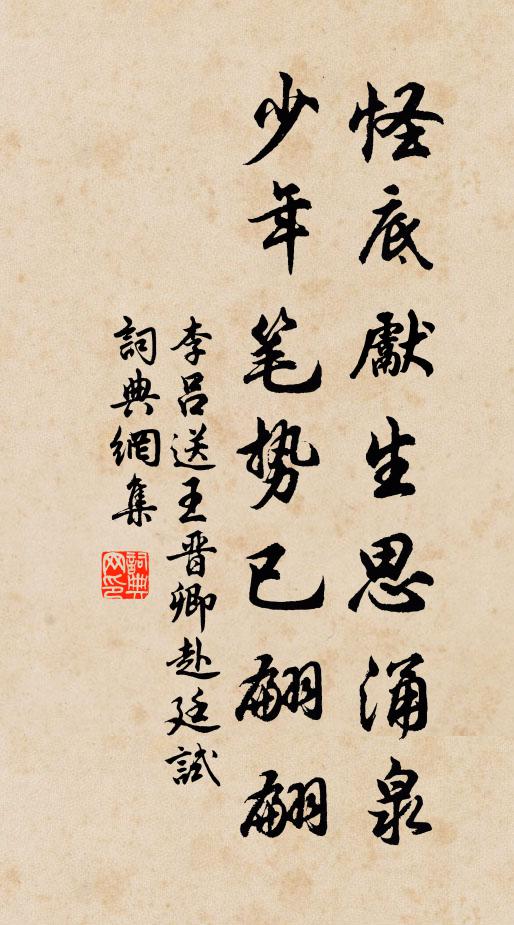 怪底獻生思涌泉
少年笔势已翩翩
李呂送王晋卿赴廷試
詞典網集
詞典网印